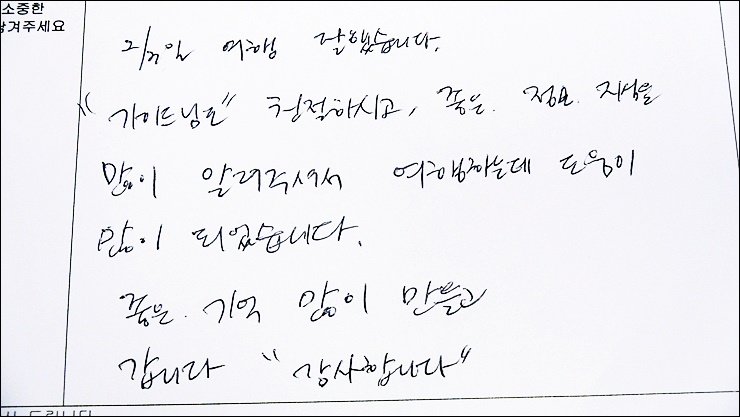 소중한
남겨주세요
2/21일 여행 잘했습니다.
"가이드님도" 친절하시고, 좋은. 정보. 지식을
많이 알려주셔서 여행하는데 도움이
많이 되었습니다.
좋은. 기억 많이 만들고
갑니다 "감사합니다"
드립니다